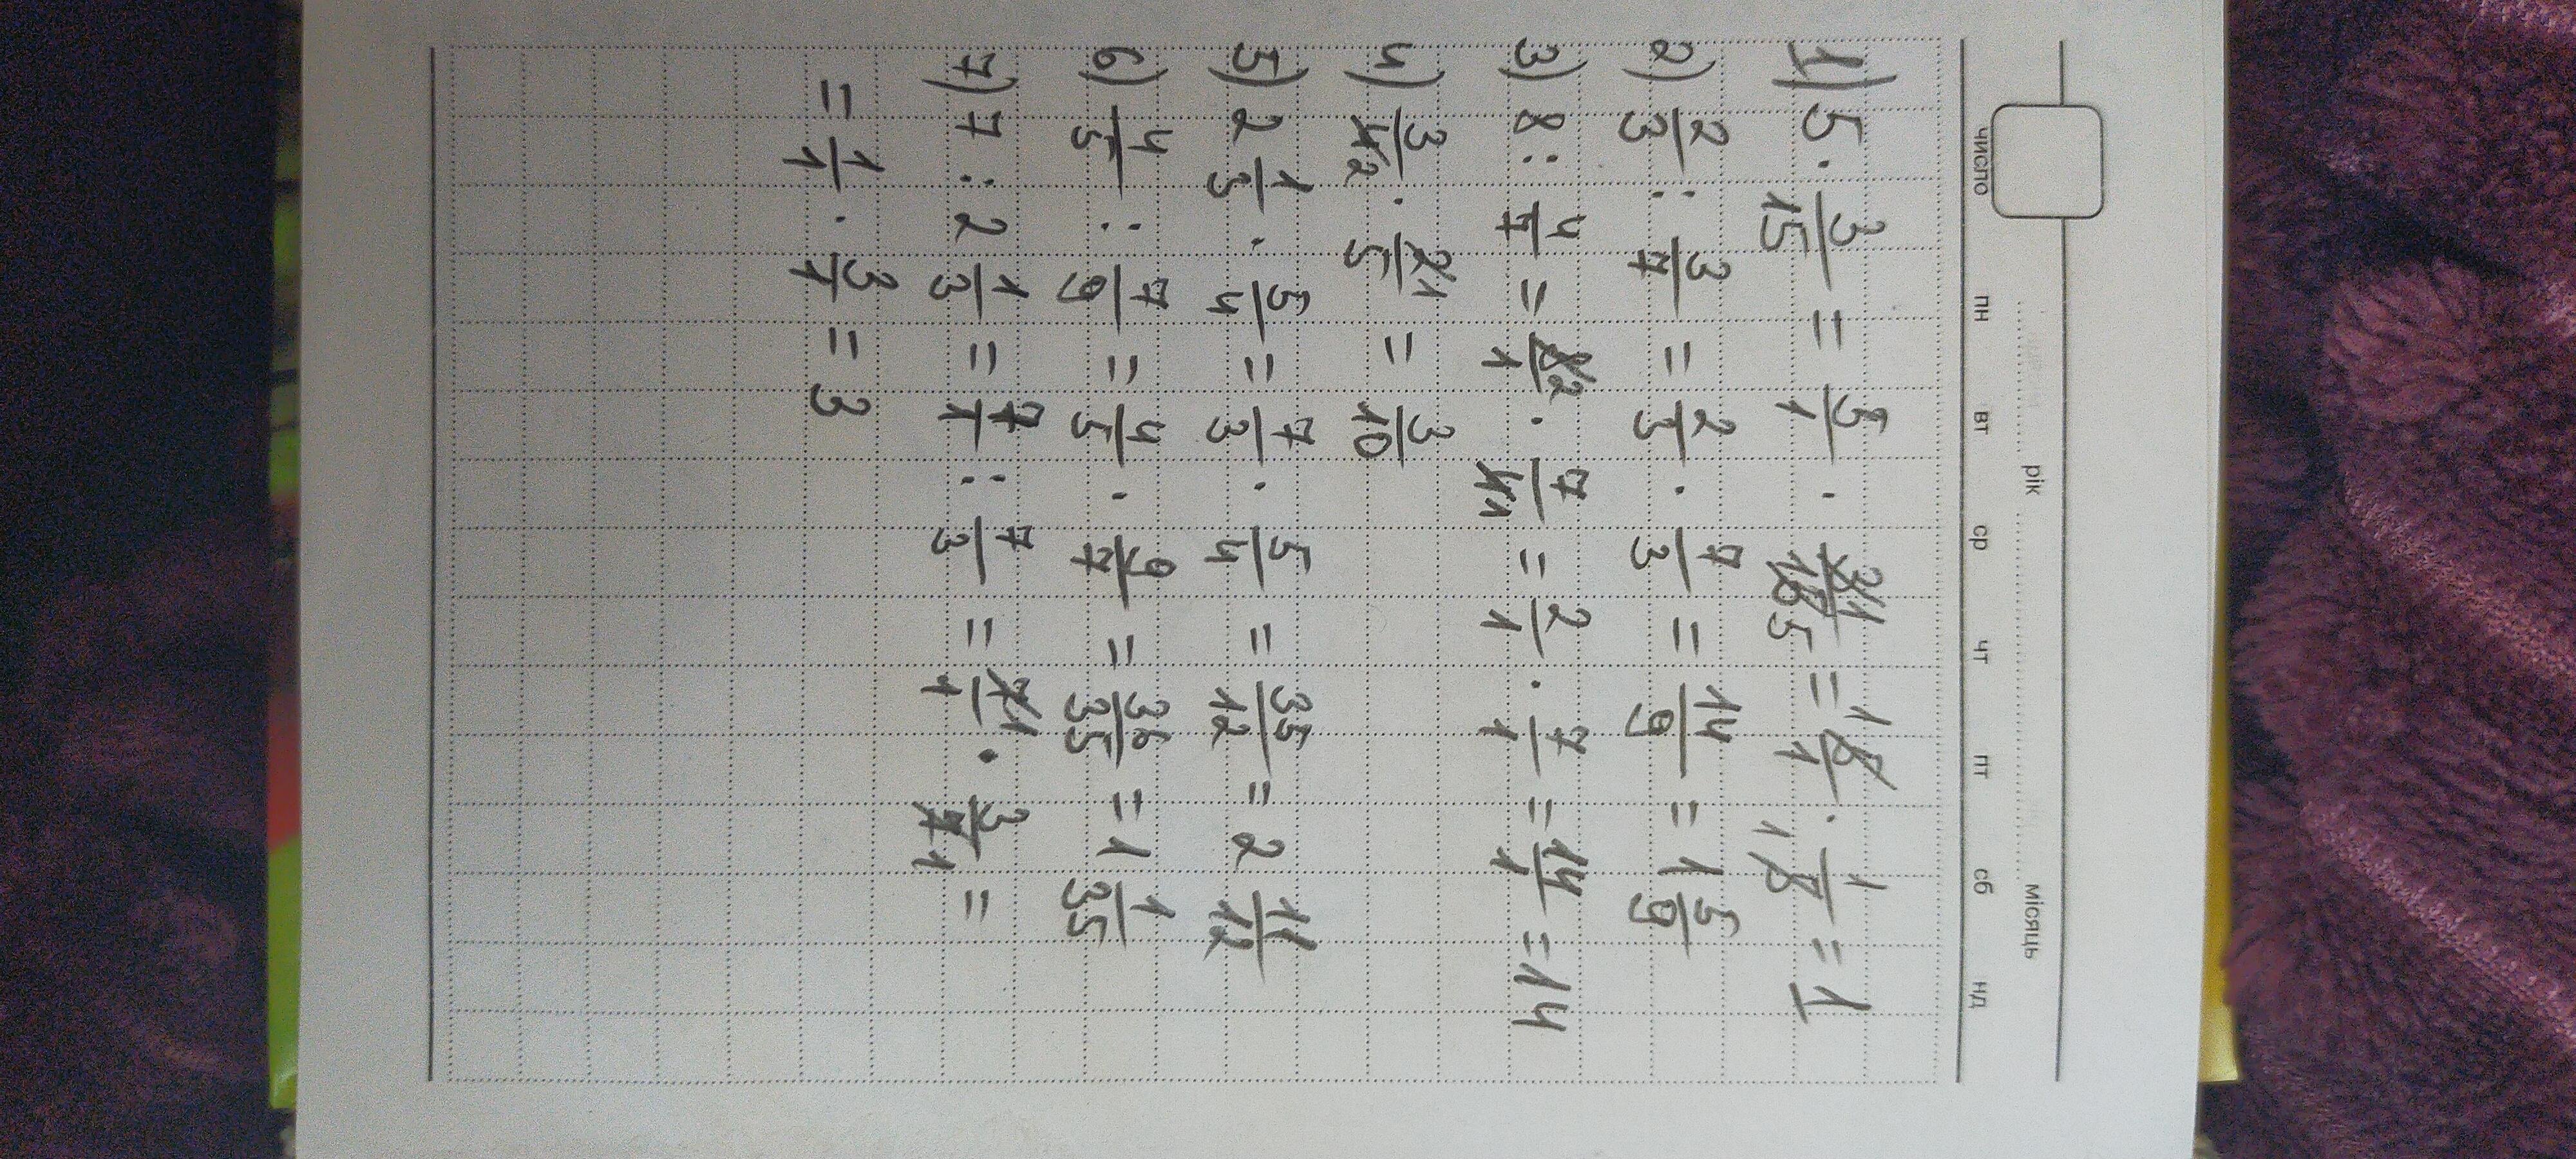 рік місяць
число пн вт ср чт пт сб нд
1) 5 · 3/15 = 5/1 · 3 1/15 5 = 1 5/1 · 1/1 5 = 1
2) 2/3 : 3/7 = 2/3 · 7/3 = 14/9 = 1 5/9
3) 8 : 4/7 = 8 2/1 · 7/4 1 = 2/1 · 7/1 = 14/1 = 14
4) 3/4 2 · 2 1/5 = 3/10
5) 2 1/3 · 5/4 = 7/3 · 5/4 = 35/12 = 2 11/12
6) 4/5 : 7/9 = 4/5 · 9/7 = 36/35 = 1 1/35
7) 7 : 2 1/3 = 7/1 : 7/3 = 7 1/1 · 3/7 1 =
= 1/1 · 3/1 = 3